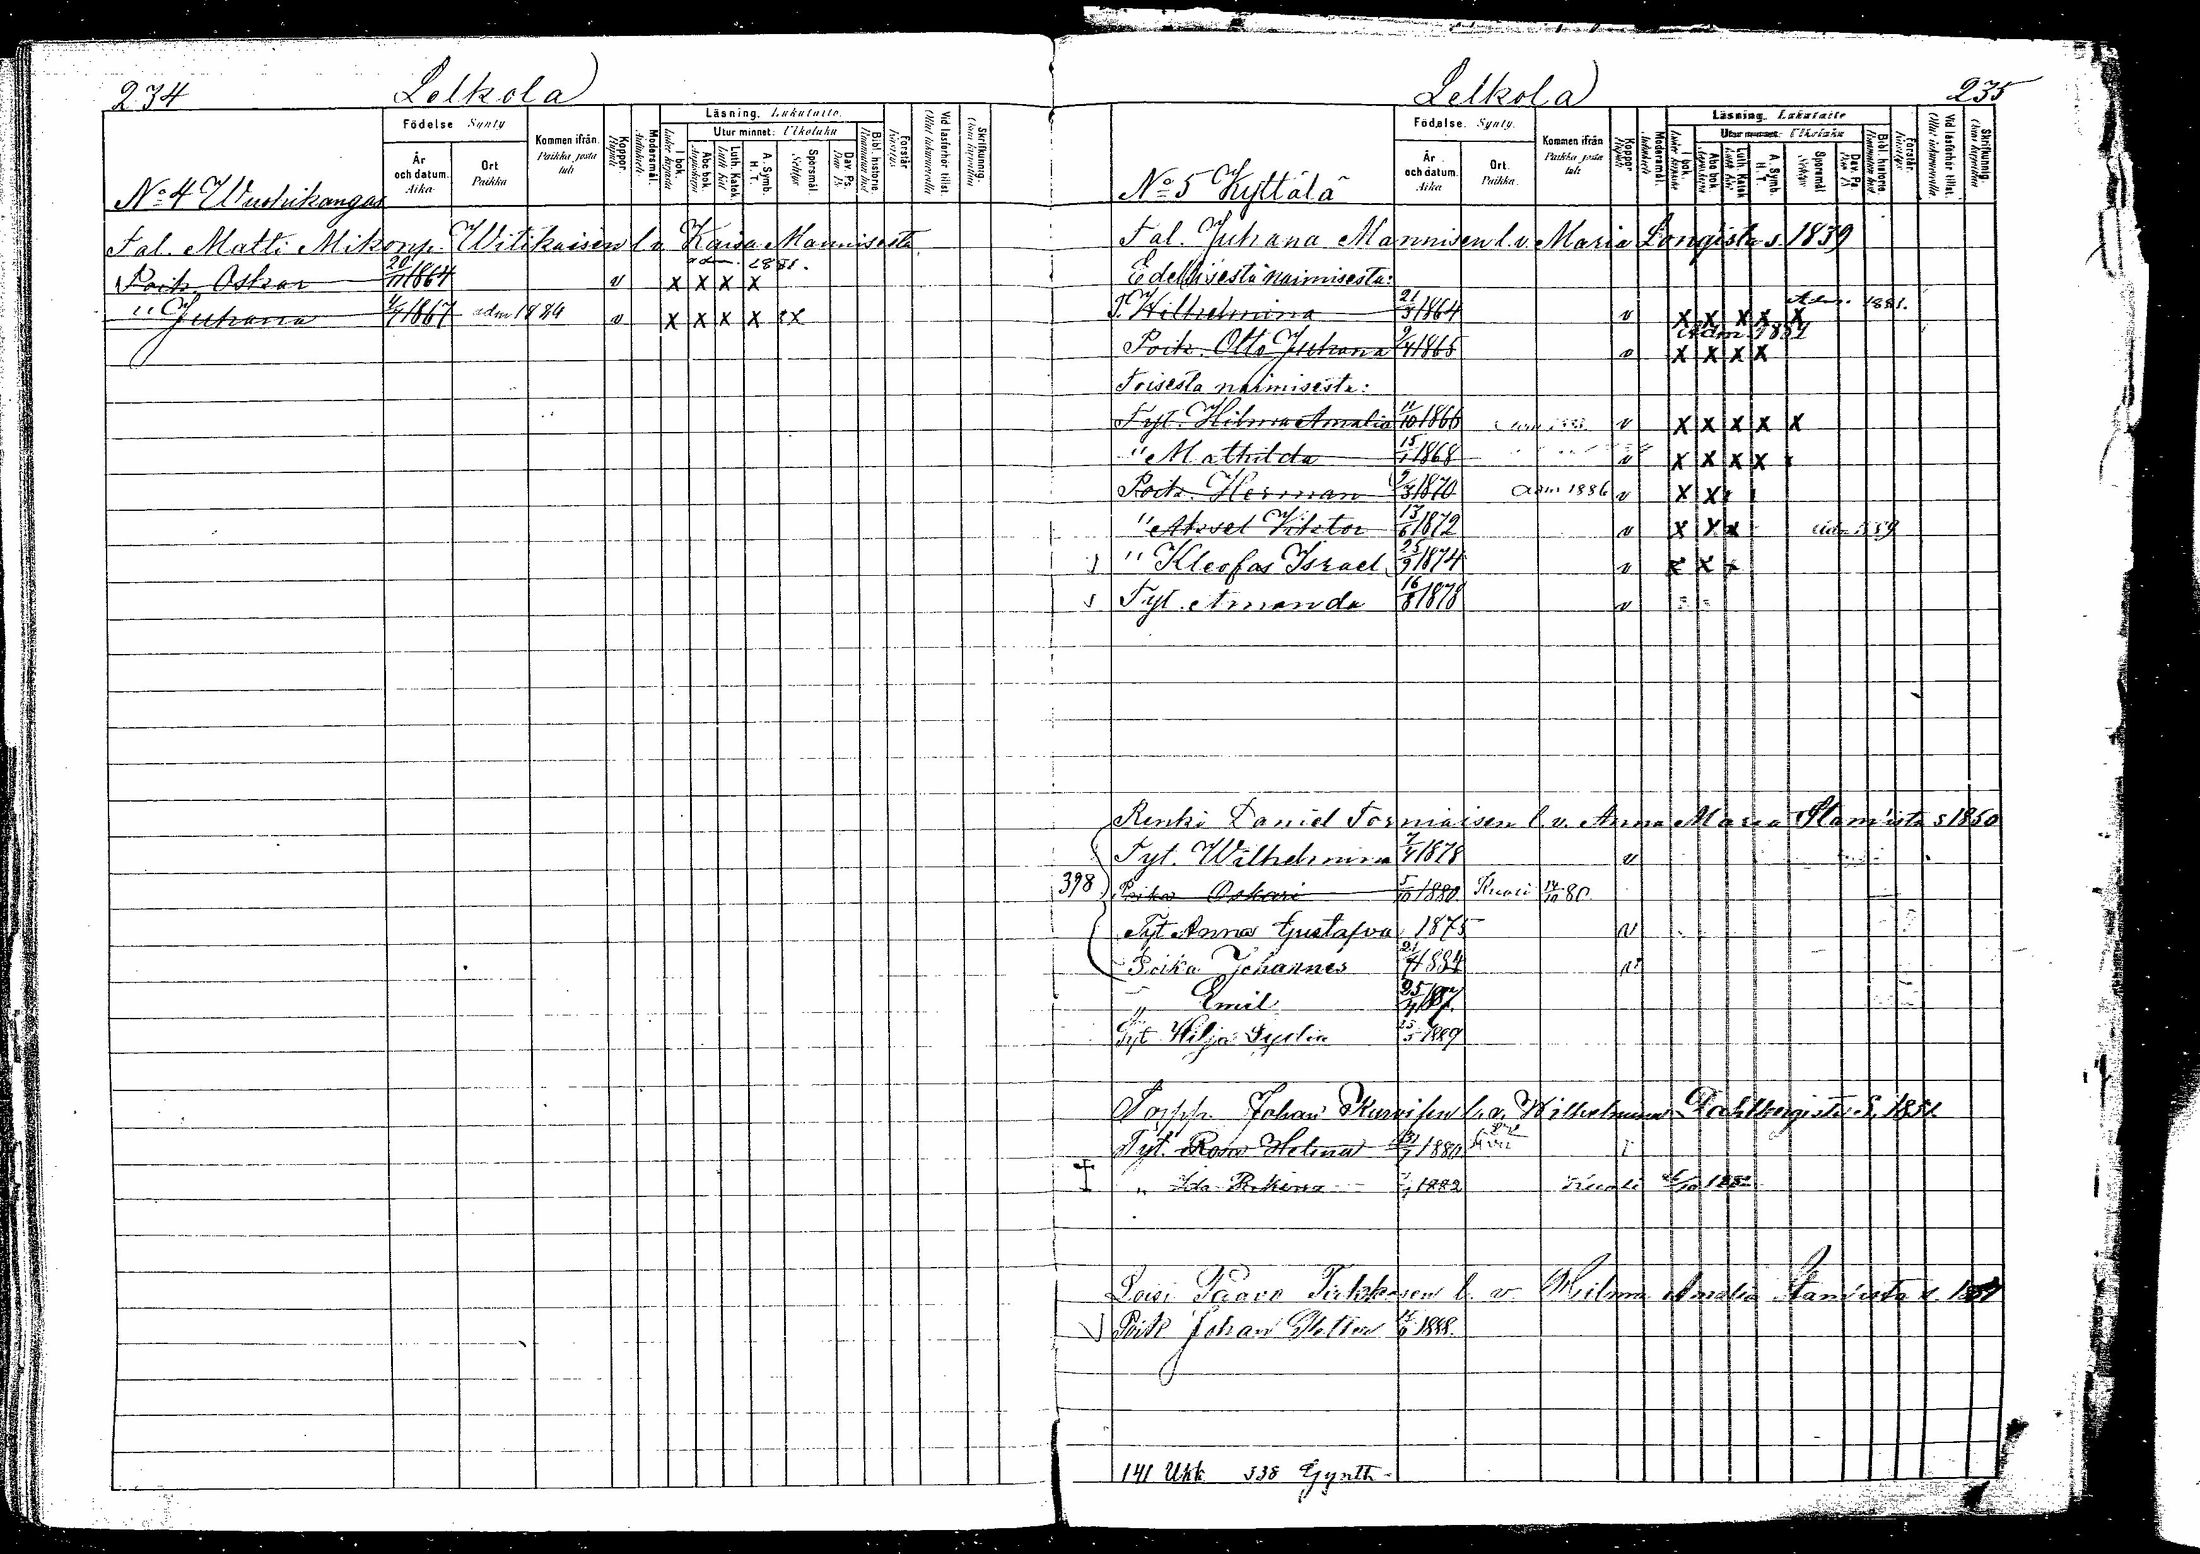 234 Lelkola
Födelse Synty
Kommen ifrån. Paikka josta tuli
Koppor. Rupuli
Modersmål.
Läsning. Lukutaito.
Utur minnet: Ulkoluku
I bok.
Abc bok.
Luth. Katek.
A. Symb. H. T.
Spörsmål
Dav. Ps.
Bibl. historia.
Förstår.
Vid läsförhör tillst.
Skriftkunnig.
År och datum. Aika.
Ort Paikka
No 4 Wuohikangas
Tal. Matti Mikonp. Witikaisen l. v. Kaisa Mannisesta
adm. 1881.
Poik. Oskar 20/11 1864 v x x x x
" Juhana 4/7 1867 adm 1884 v x x x x xx
Lelkola 235
Födelse. Synty.
Kommen ifrån Paikka josta tuli
Koppor. Rupuli
Modersmål.
Läsning. Lukutaito
Utur minnet: Ulkoluku
I bok.
Abc bok.
Luth. Katek
A. Symb. H. T.
Spörsmål
Dav. Ps
Bibl. historia.
Förstår.
Vid läsförhör tillst.
Skriftkunnig.
År och datum. Aika
Ort. Paikka.
No 5 Kyttälä
Tal. Juhana Mannisen l. v. Maria Longista s. 1839
Edellisestä naimisesta:
T. Wilhelmina 21/3 1864 v x x x x x Adm. 1881.
Poik. Otto Juhana 9/4 1865 v x x x x Adm. 1884
Toisesta naimisesta:
Tyt. Hilma Amalia 11/10 1866 v x x x x x
" Mathilda 15/1 1868 v x x x x
Poik. Herman 9/3 1870 adm 1886 v x x
" Aksel Viktor 13/6 1872 v x x x adm 1889
" Kleofas Israel 25/9 1874 v x x x
Tyt. Amanda 16/8 1878 v
Renki Daniel Torniaisen l. v. Anna Maria Stam'ista s 1850
Tyt. Wilhelmina 7/4 1878 v
398 Poika Oskari 5/10 1880 Kuoli 14/10 80
Tyt Anna Gustafva 1875 v
Poika Johannes 21/4 1884 v
" Emil 25/4 87.
Tyt Hilja Lydia 25/5 1889
Torpp. Johan Kurvisen l. v. Wilhelmina Dahlbergista S. 1851.
Tyt. Rosa Helena 1880
" Ida 1882 Kuoli 1882
Loisi Paavo Tirkkosen l. v. Hilma Amalia Stam'ista s.
Poik Johan Petter 1888.
141 Ukk 538 Gynth.